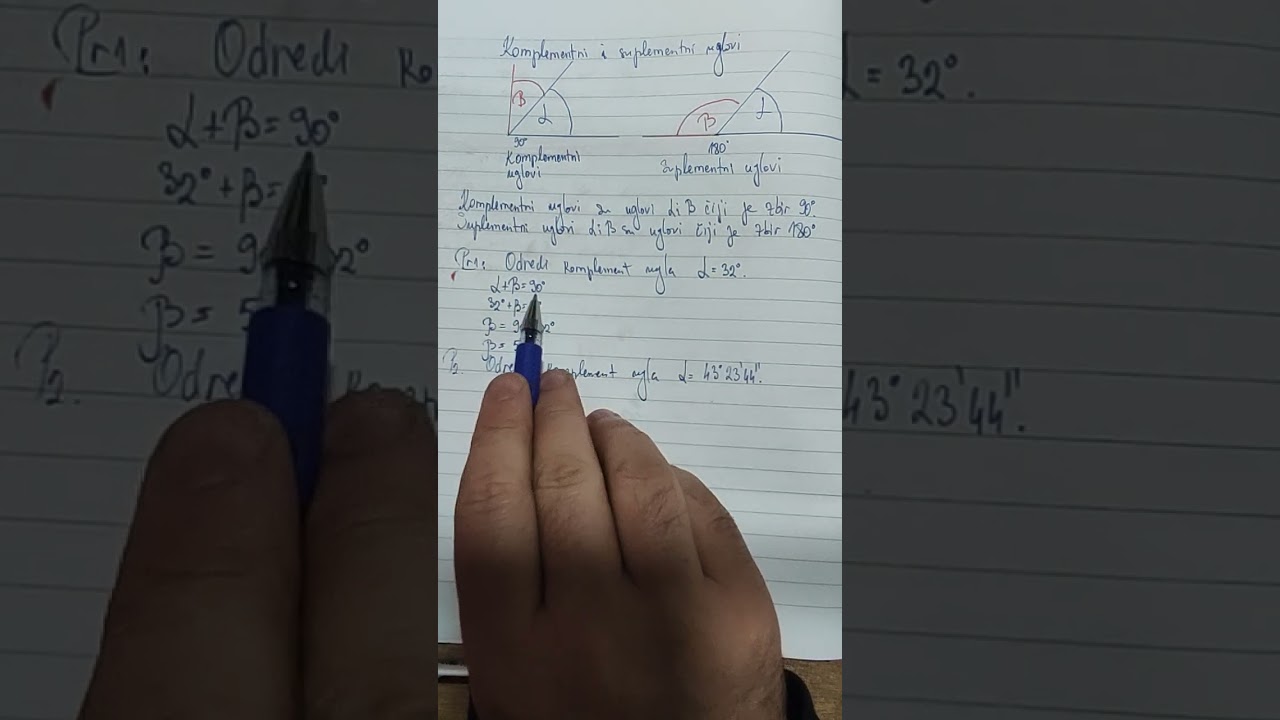 Komplementni i suplementni uglovi
β α β α
90° 180°
Komplementni uglovi
Suplementni uglovi
Komplementni uglovi su uglovi α i β čiji je zbir 90°.
Suplementni uglovi α i β su uglovi čiji je zbir 180°
Pr1: Odredi komplement ugla α = 32°.
α + β = 90°
32° + β =
β = 9 2°
β = 5
P2. Odre komplement ugla α = 43° 23' 44".